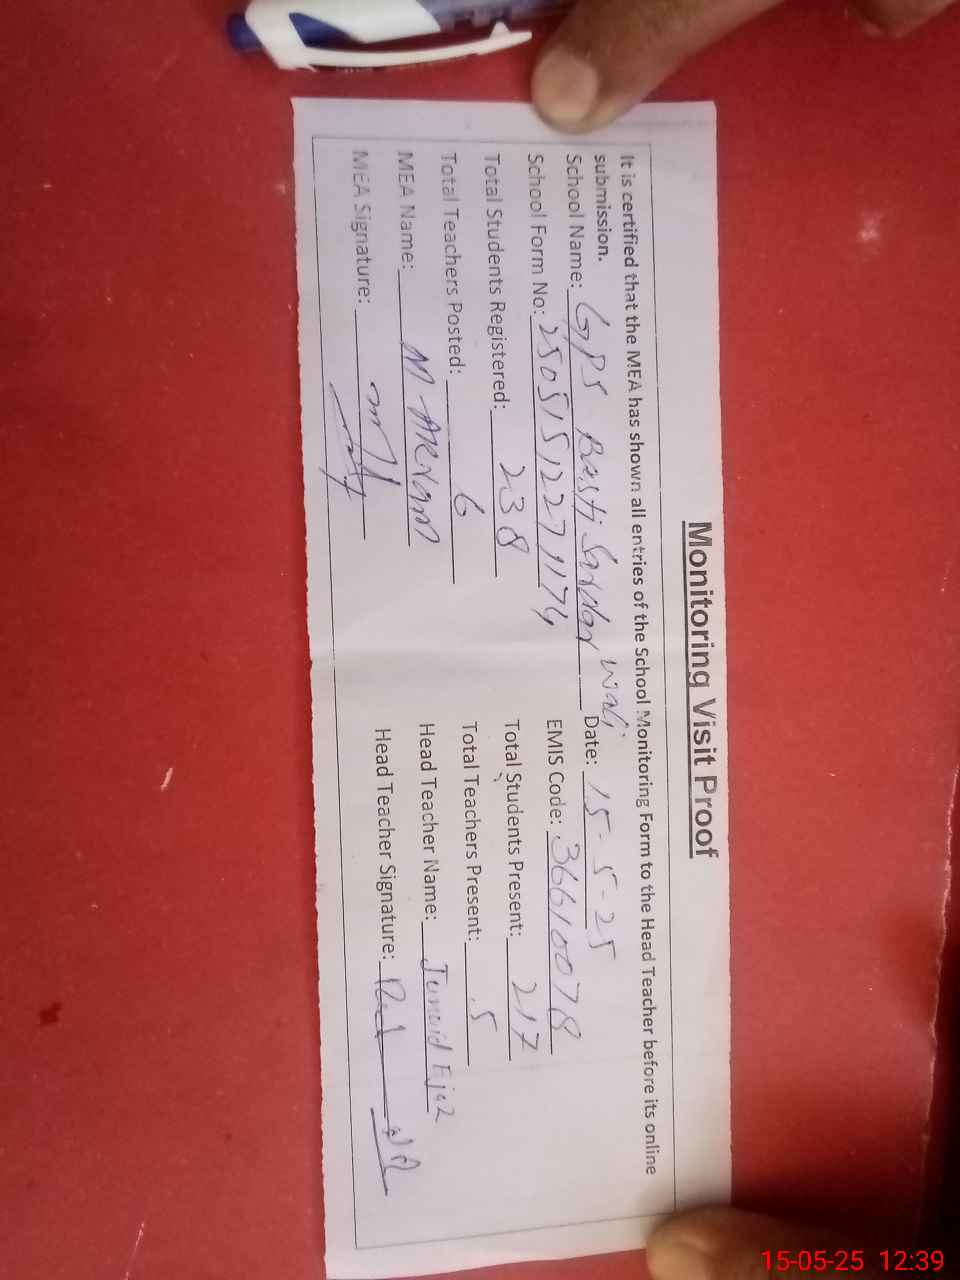 Monitoring Visit Proof
It is certified that the MEA has shown all entries of the School Monitoring Form to the Head Teacher before its online
submission.
School Name: GPS Basti Sardar Wali Date: 15-5-25
School Form No: 25051512271174 EMIS Code: 36610078
Total Students Registered: 238 Total Students Present: 217
Total Teachers Posted: 6 Total Teachers Present: 5
MEA Name: M Akram Head Teacher Name: Junaid Ejaz
MEA Signature: Head Teacher Signature:
15-05-25 12:39